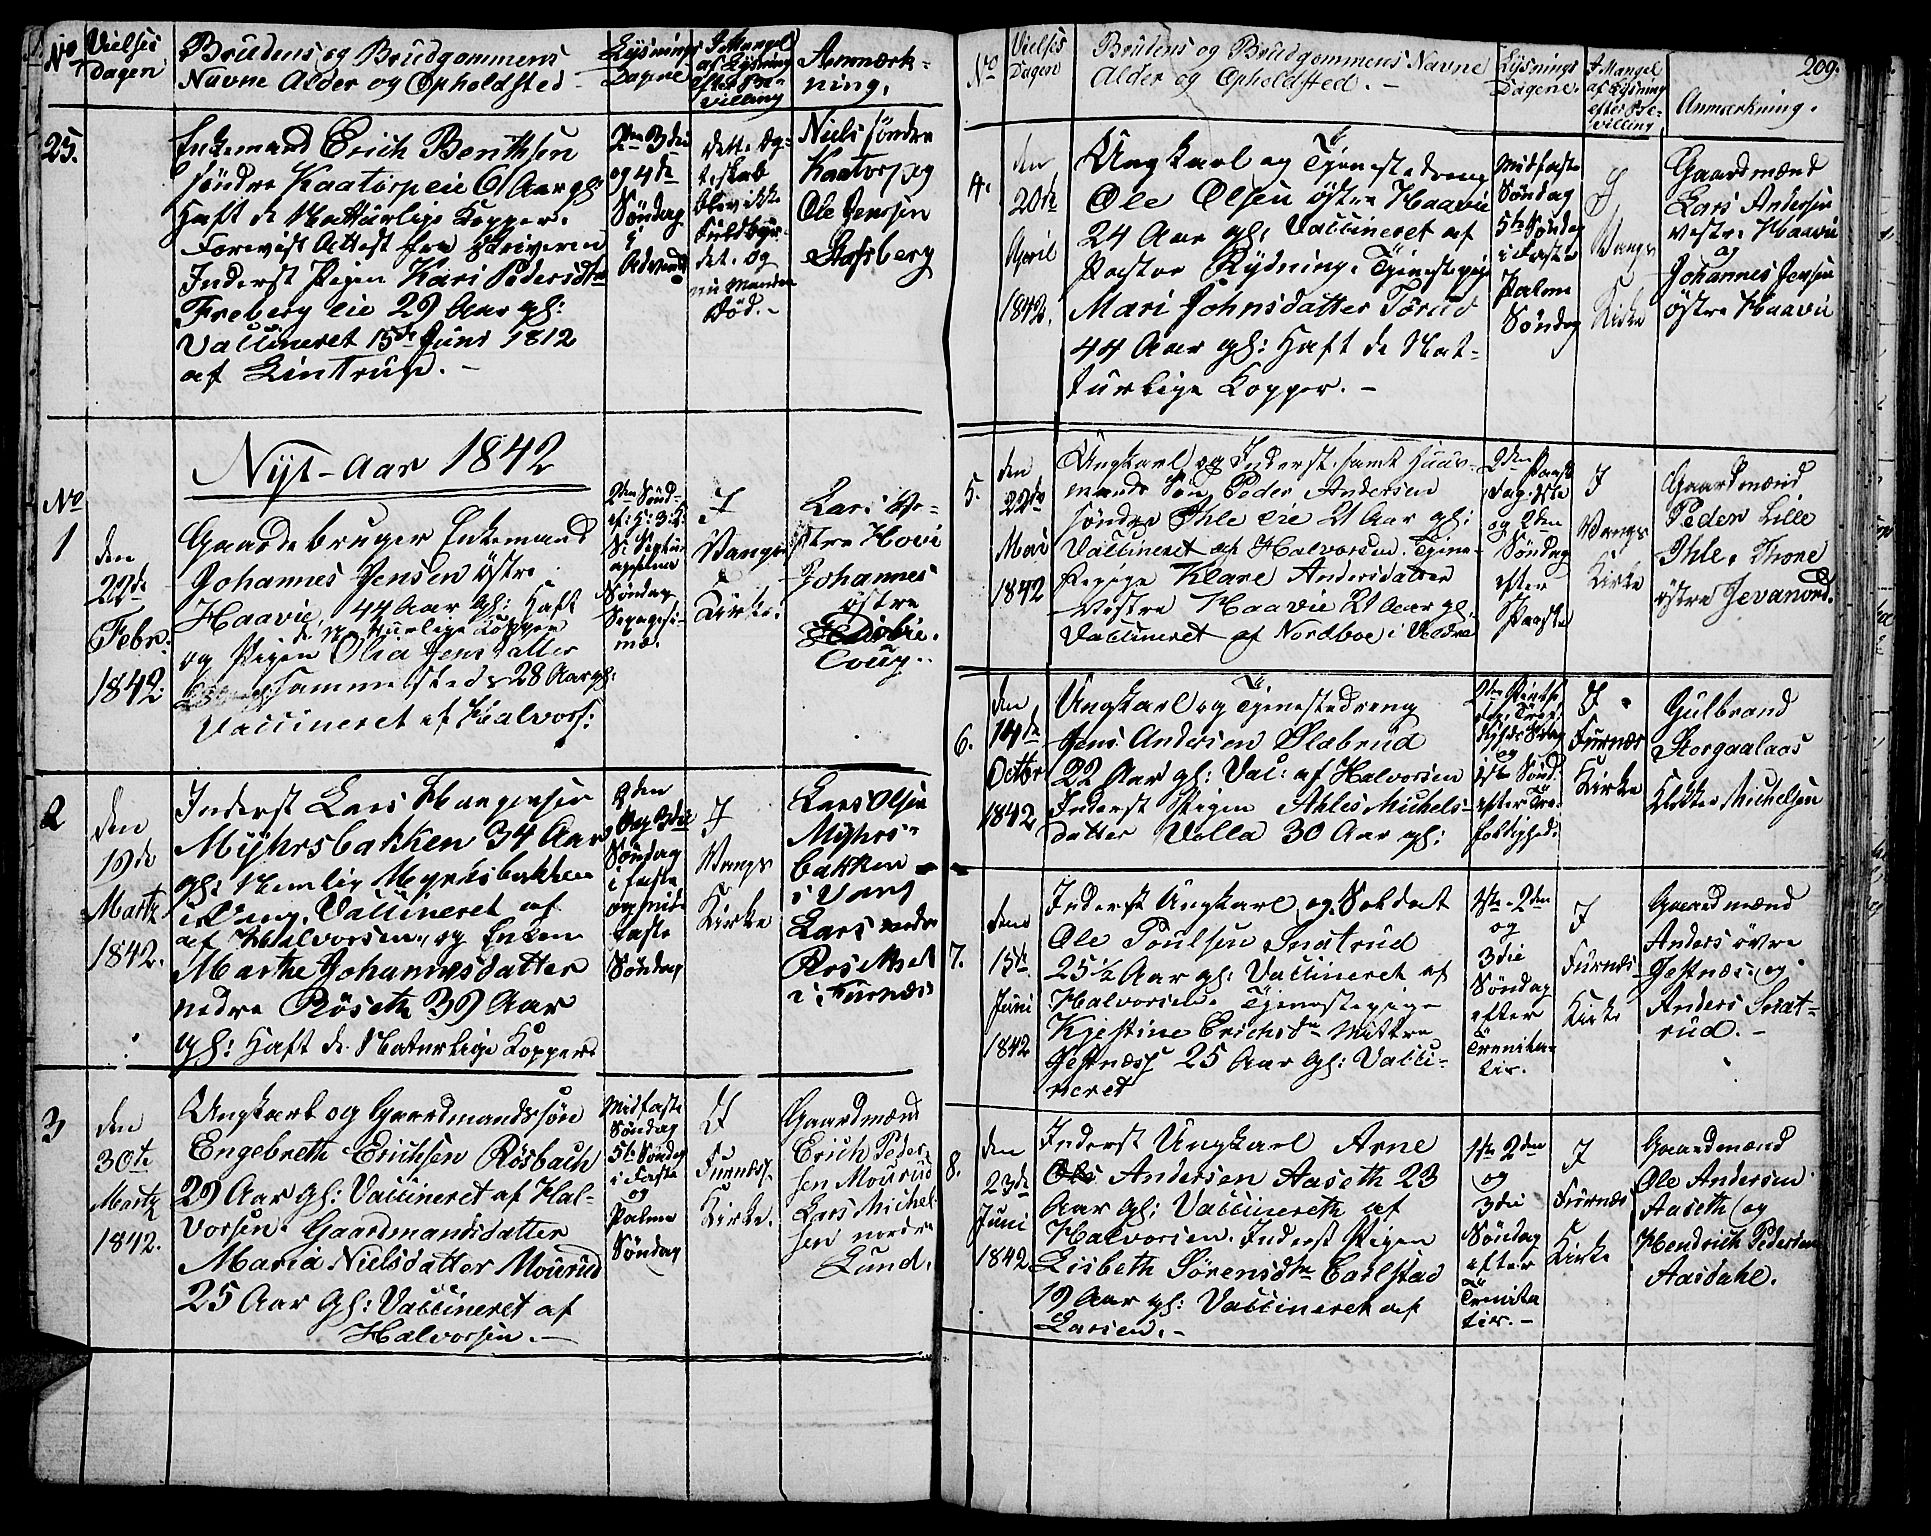 No
Vielses
dagen
Brudens og Brudgommens
Navne Alder og Opholdsted
Lysnings
Dagene
I Mangel
af Lysning
efter Be-
villing
Anmærk-
ning.
25.
Enkemand Erich Benthsen
söndre Kaatorpeie 61 Aar gl:
haft de Natturlige Kopper.
Forevist Attest fra Skriveren
Inderst Pigen Kari Pedersdtr
Freberg eie 29 Aar gl:
Vaccineret 15de Juni 1812
af Lintrup. -
2den 3die
og 4de
Söndag
i
Advent
Dette Eg-
teskab
blev ikke
fuldbyr-
det. og
nu Manden
Död. -
Niels söndre
Kaatorp og
Ole Jenssen
Stafsberg
Nyt-Aar 1842
No
1
den
22de
Febr:
1842.
Gaardebruger Enkemand
Johannes Jensen östre
Haavie, 44 Aar gl: haft
de Natturlige Kopper
og Pigen Olia Jensdatter
sammesteds 28 Aar gl:
Vaccineret af Halvors:
2den Sönd-
ef: H: 3: K:
Septua
gesima
Söndag
Sexagesi-
mæ.
I
Vangs
Kirke.
Lars Ve-
stre Hovi
Johannes
östre
2
den
19de
Martz
1842.
Inderst Lars Haagensen
Myhrsbakken 34 Aar
gl: Nemlig Myrhsbakken
i Vang. Vaccineret af
af Halvorsen, og Enken
Marthe Johannesdatter
nedre Röseth 39 Aar
gl: haft de Naturlige Kopper.
2den
og 3die
Söndag
i faste
og Mid-
faste
Söndag
I
Vangs
Kirke
Lars Olsen
Myhrs-
bakken
i Vang
Lars nedre
Röseth
i Furnæs
3
den
30te
Martz
1842.
Ungkarl og Gaardmandssön
Engebreth Erichsen Rösbach
29 Aar gl: Vaccineret af Hal-
vorsen. Gaardmandsdatter
Maria Nielsdatter Mourud
25 Aar gl: Vaccineret af
Halvorsen. -
Midfaste
Söndag
5te Söndag
i Faste
og
Palme
Söndag
I
Furnæss
Kirke.
Gaardmænd
Erich Peder-
sen Mourud
Lars Michel-
sen nordre
Lund.
209.
No
Vielses
Dagen
Brudens og Brudgommens Navne
Alder og Opholdsted. -
Lysnings
Dagene.
I Mangel
af Lysning
efter Be-
villing
Anmærkning.
4.
den
20de
April
1842.
Ungkarl og Tjenestedreng
Ole Olsen östre Haavie
24 Aar gl: Vaccineret af
Pastor Rydning. Tjenestepige
Mari Johnsdatter Torud
44 Aar gl: haft de Nat-
turlige Kopper. -
Midfaste
Söndag
5te Söndag
i Faste
Palme
Söndag
I
Vangs
Kirke
Gaardmænd
Lars Andersen
vestre Haavie
og
Johannes Jensen
östre Haavie
5.
den
22de
Mai
1842
Ungkarl og Inderst, samt Huus-
mands Sön Peder Andersen
söndre Ihle eie 21 Aar gl:
Vaccineret af Halvorsen. Tjene-
stepige Klare Andersdatter
Vestre Haavie 21 Aar gl:
Vaccineret af Nordboe i Valdre
2den Paaske
dag 1ste
og 2den
Söndag
efter
Paaske
I
Vangs
Kirke
Gaardmænd
Peder Lille
Ihle. Thore
östre Jevanord.
6.
den
14de
Octbr
1842
Ungkarl og Tjenestedreng
Jens Andersen Ölebrud
22 Aar gl: Vac: af Halvorsen
Inderst Pigen Ahles Michels-
datter Volla 30 Aar gl:
2den Pintse
og
1ste Sönd.
efter Tre-
foldighed.
I
Furnæs
Kirke
Gulbrand
Storgaalaas
Michelsen
7.
den
15de
Juni
1842
Inderst Ungkarl og Soldat
Ole Poulsen Snatrud
25½ Aar gl: Vaccineret af
Halvorsen. Tjenestepige
Kjestine Erichsdtr Mittre
Jestnæss 25 Aar gl: Vacci-
neret
1ste 2den
og
3die
Söndag
efter
Trenita-
tis.
I
Furnæs-
Kirke
Gaardmænd
Anders övre
Jestnæs. og
Anders Snat-
rud. -
8.
den
23de
Juni
1842
Inderst Ungkarl Arne
Ole Andersen Aaseth 23
Aar gl: Vaccinereth af
Halvorsen. Inderst Pigen
Lisbeth Sörensdtr Carlstad
19 Aar gl: Vaccineret af
Larsen. -
1ste 2den
og
3die
Söndag
efter
Trenita
tis. -
I
Furnæs
Kirke
Gaardmænd
Ole Andersen
Aaseth og
Hendrich Pedersen
Aasdahl.